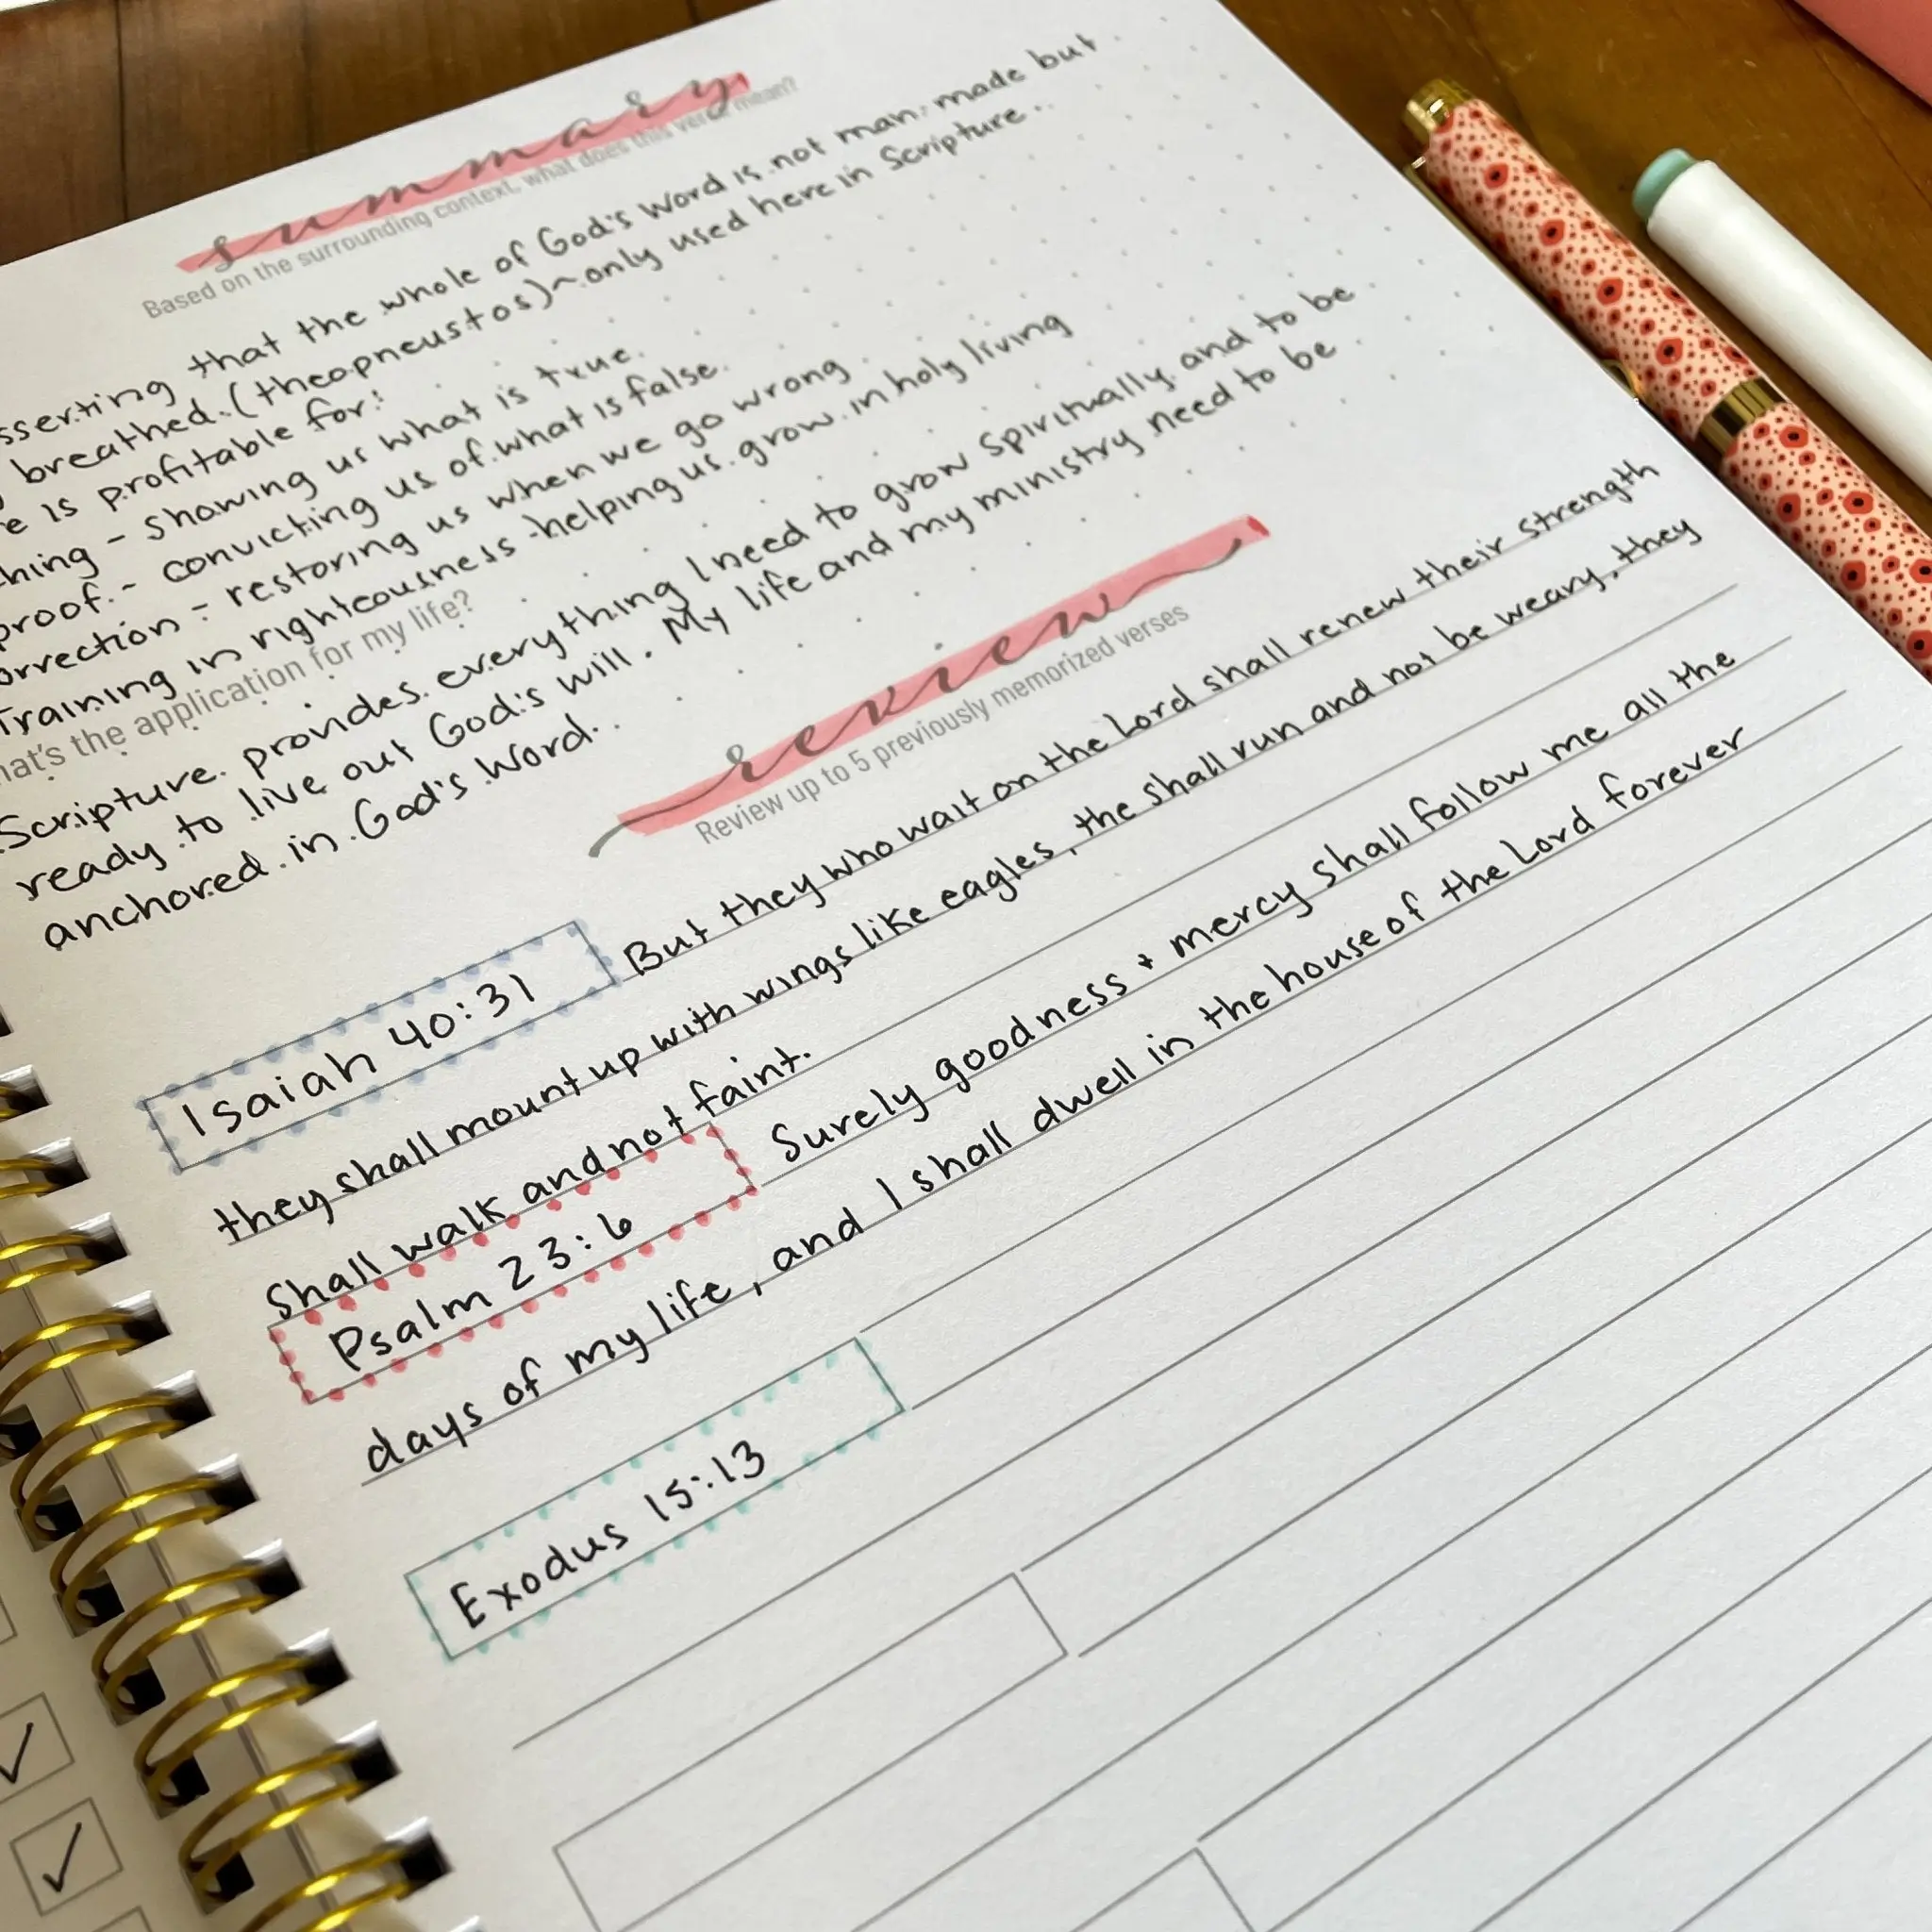 summary
Based on the surrounding context, what does this verse mean?
sserting that the whole of God's Word is not man-made but
breathed (theopneustos) ~ only used here in Scripture.
e is profitable for:
hing - showing us what is true.
proof - convicting us of what is false.
orrection - restoring us when we go wrong.
Training in righteousness - helping us grow in holy living
hat's the application for my life?
Scripture provides everything I need to grow spiritually and to be
ready to live out God's will. My life and my ministry need to be
anchored in God's Word.
review
Review up to 5 previously memorized verses
Isaiah 40:31 But they who wait on the Lord shall renew their strength
they shall mount up with wings like eagles, the shall run and not be weary, they
shall walk and not faint.
Psalm 23:6 Surely goodness + mercy shall follow me all the
days of my life, and I shall dwell in the house of the Lord forever
Exodus 15:13